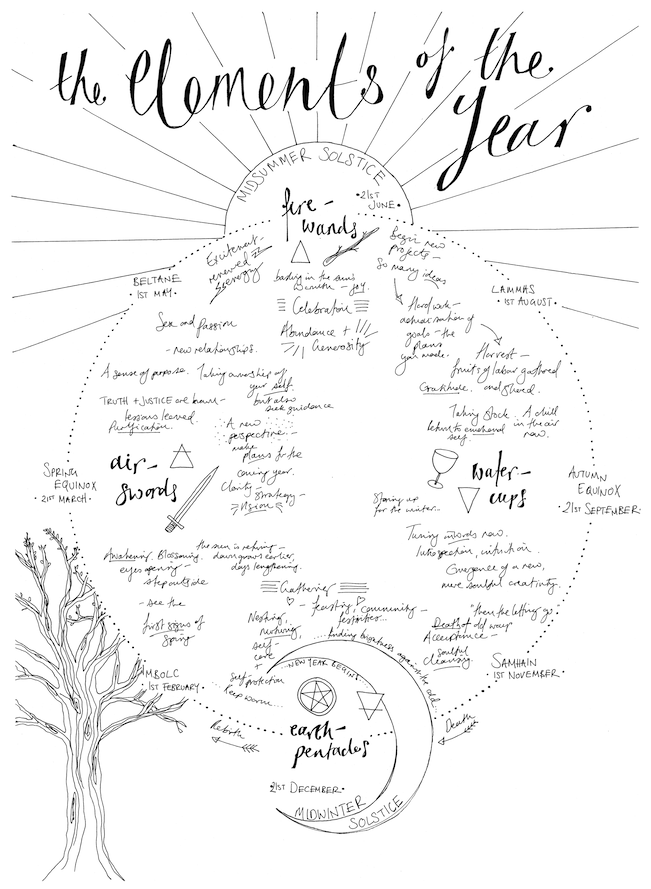 the Elements of the
Year
MIDSUMMER SOLSTICE
• 21ST
JUNE •
fire –
wands
Excitement –
renewed
energy
Begin new
projects –
So many ideas
basking in the sun's
warmth – joy.
Celebration
Abundance +
Generosity
BELTANE
• 1ST MAY •
LAMMAS
• 1ST AUGUST •
Sex and passion
– new relationships.
Hard work –
actualisation of
goals – the
plans
you made.
Harvest –
fruits of labour gathered
Gratitude. and shared.
A sense of purpose. Taking ownership of
your self
but also
seek guidance
TRUTH + JUSTICE are born –
lessons learned
Purification.
Taking stock. A chill
in the air
now.
return to
self
A new
perspective –
make
plans for the
coming year.
Clarity – Strategy –
Vision
air –
swords
SPRING
EQUINOX
• 21ST MARCH •
water –
cups
AUTUMN
EQUINOX
• 21ST SEPTEMBER •
Storing up
for the winter..
Tuning inwards now.
Introspection, intuition.
Emergence of a new,
more soulful creativity.
Awakening. Blossoming.
eyes opening –
step outside
the sun is rising –
dawn grows earlier,
days lengthening.
– see the
first signs of
Spring
Gathering
– feasting, community –
festivities..
Nesting,
nurturing,
self-
care
+
self-
protection
Keep warm..
...finding brightness against the cold...
"then the letting go"
Death of old ways
Acceptance –
soulful
cleansing.
IMBOLC
1ST FEBRUARY •
SAMHAIN
1ST NOVEMBER •
– NEW YEAR BEGINS –
earth –
pentacles
Rebirth
Death
• 21ST DECEMBER •
MIDWINTER
SOLSTICE